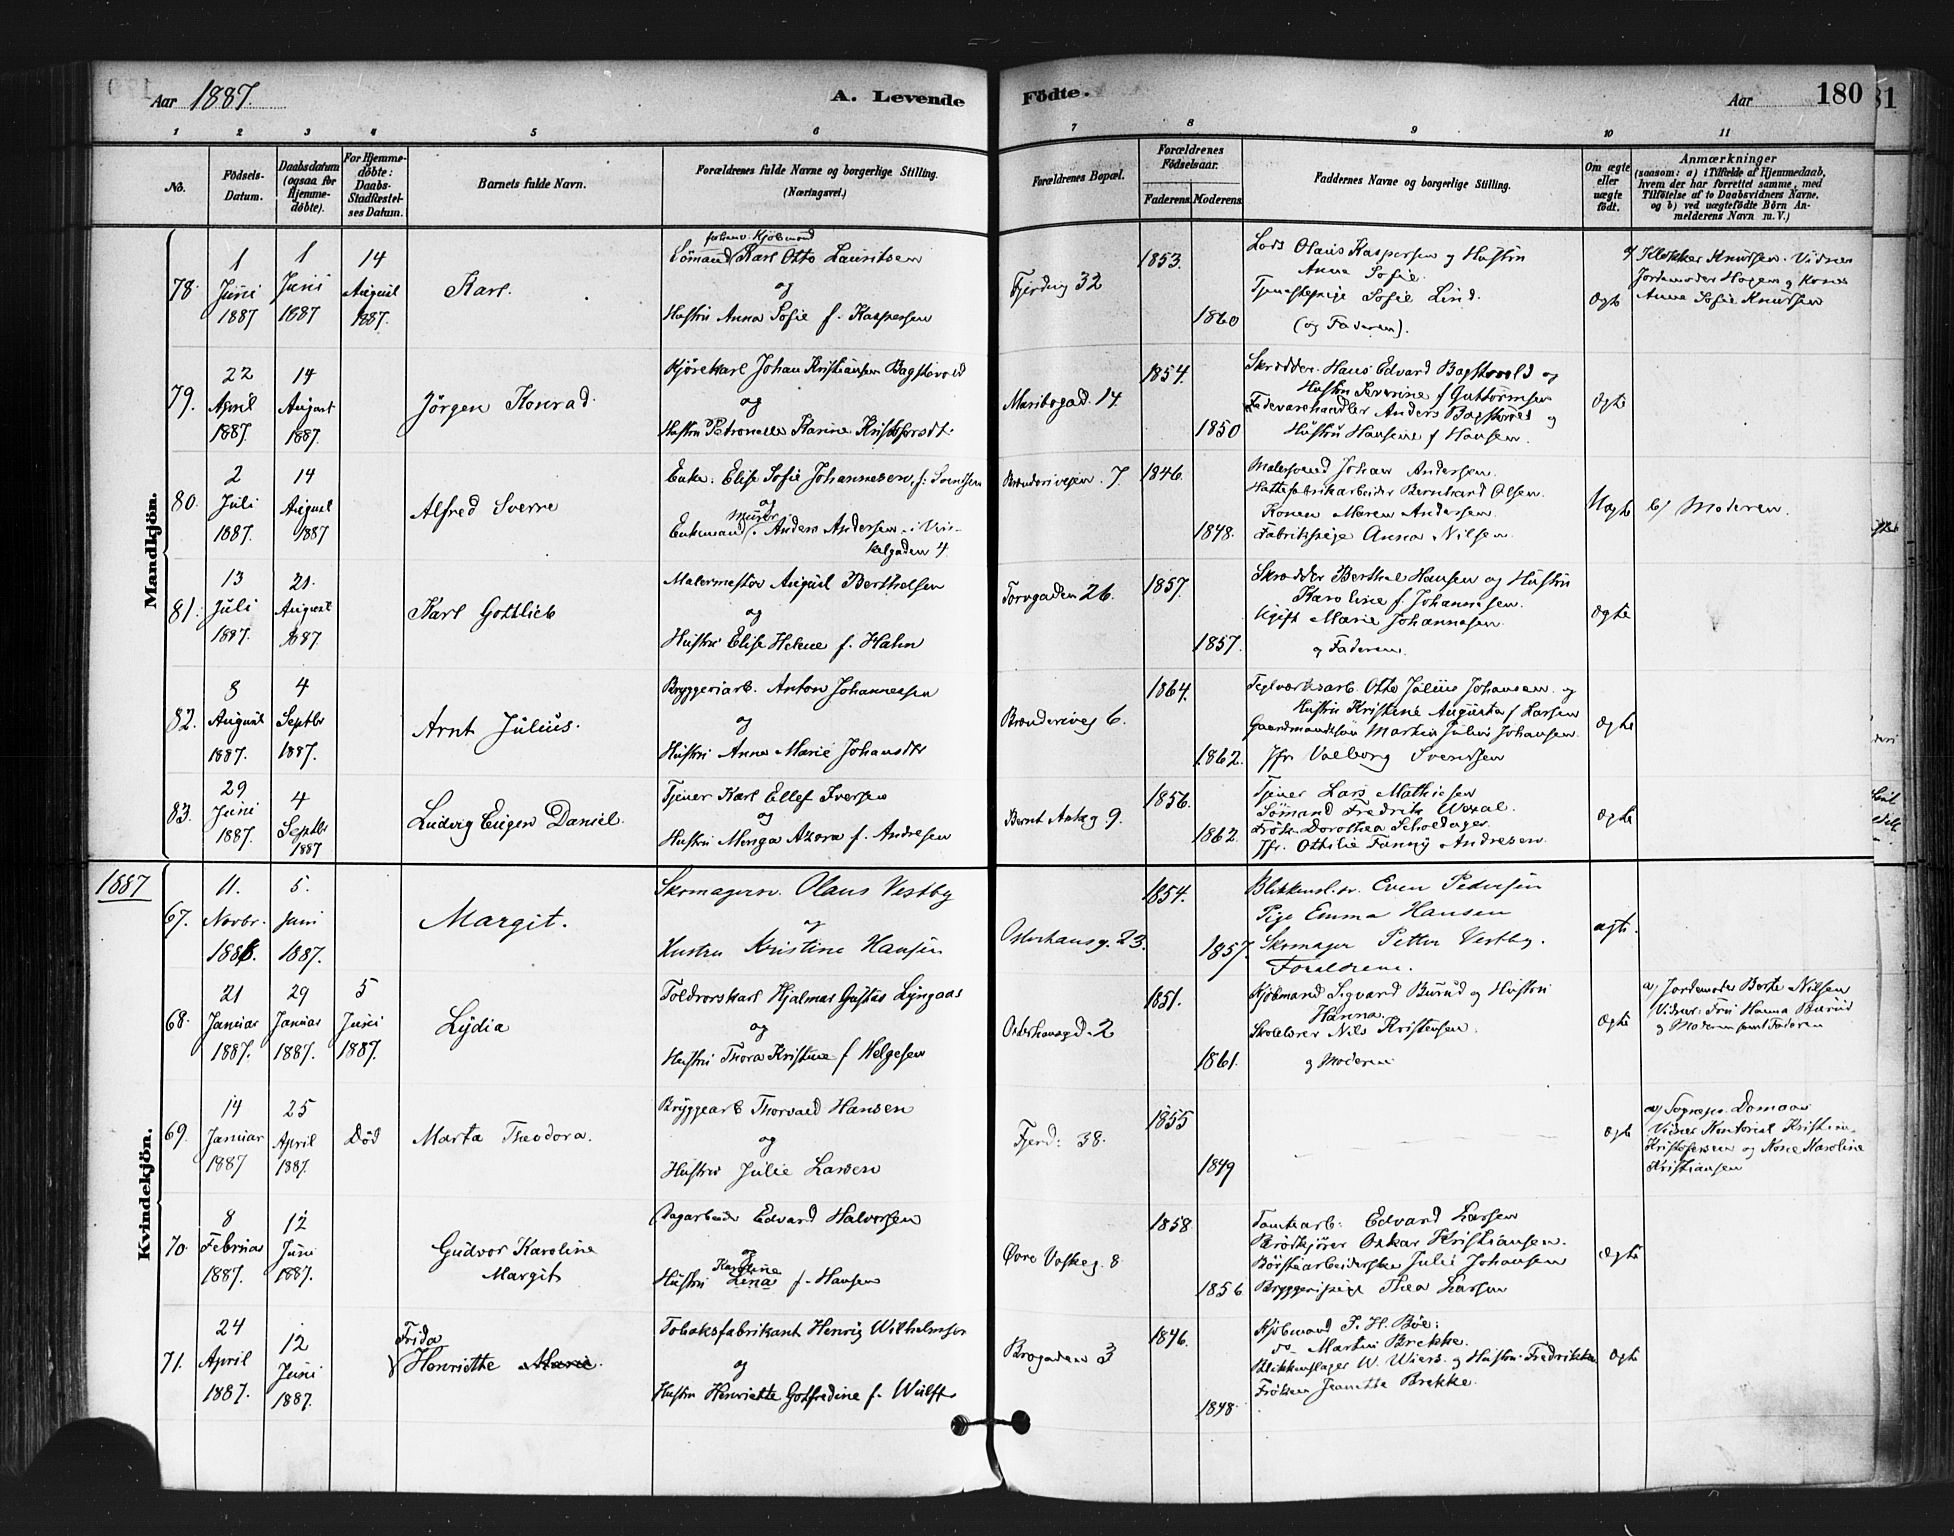 Aar 1887.
A. Levende
Födte.
Aar
180
81
1 2 3 4 5 6 7 8 9 10 11
No.
Födsels-
Datum.
Daabsdatum
(ogsaa for
Hjemme-
døbte).
For Hjemme-
døbte:
Daabs-
Stadfæstel-
ses Datum.
Barnets fulde Navn.
Forældrenes fulde Navne og borgerlige Stilling.
(Næringsvei.)
Forældrenes Bopæl.
Forældrenes
Födselsaar.
Faderens.
Moderens.
Faddernes Navne og borgerlige Stilling.
Om ægte
eller
uægte
født.
Anmærkninger
(saasom: a) i Tilfælde af Hjemmedaab,
hvem der har forrettet samme, med
Tilföielse af to Daabsvidners Navne,
og b) ved uægtefødte Börn An-
melderens Navn m. V.)
Mandkjön.
78.
1
Juni
1887
1
Juni
1887
14
August
1887.
Karl.
Kjøbmand
Sömand Karl Otto Lauritsen
og
Hustru Anna Sofie f. Kaspersen
Fjerding 32
1853.
1860
Lods Olaus Kaspersen og Hustru
Anna Sofie.
Tjenestepige Sofie Lind.
(og Faderen).
Ægte
a) Klokker Knudsen. Vidner
Jordemoder Hagen og Kone
Anna Sofie Knudsen
79.
22
April
1887.
14
August
1887.
Jörgen Konrad.
Kjörekarl Johan Kristiansen Bagstevold
og
Hustru Petronelle Karine Kristofersdt.
Maribogad. 14.
1854.
1850
Skrædder Hans Edvard Bagstevold og
Hustru Severine f. Guttormsen
Fedevarehandler Anders Bagstevold og
Hustru Hansine f Hansen.
Ægte
80.
2
Juli
1887.
14
August
1887
Alfred Sverre
Enke: Elise Sofie Johannesen, f. Svendsen
og
Murer
Enkemand Anders Andersen i Vin-
kelgaden 4
Brænderiveien. 7.
1846.
1848.
Malersvend Johan Andersen.
Hattefabrikarbeider Bernhard Olsen.
Konen Maren Andersen.
Fabrikspige Anna Nilsen.
Uægte
b) Moderen.
81.
13
Juli
1887.
21.
August
1887
Karl Gottlieb
Malermester August Berthelsen
og
Hustru Elise Helene f. Hahn
Torvgaden 26.
1857.
1857.
Skrædder Berthel Hansen og Hustru
Karoline f. Johannesen.
Ugift Marie Johannesen.
og Faderen.
Ægte
82.
8
August
1887.
4
Septbr
1887.
Arnt Julius.
Bryggeriarb. Anton Johannessen
og
Hustru Anna Marie Johansdtr
Brænderiveg 6.
1864.
1862.
Teglværksarb. Otto Julius Johansen og
Hustru Kristine Augusta f Larsen
Gaardmandssön Martin Julius Johansen.
Jfr. Valborg Svendsen
Ægte
83.
29
Juni
1887.
4
Septbr
1887
Ludvig Eugen Daniel.
Tjener Karl Ellef Iversen
og
Hustru Menga Azora f. Andresen
Bernt Ankeg 9.
1856.
1862.
Tjener Lars Mathisen
Sömand Fredrik Wexal.
Frök. Dorothea
Jfr. Ottilie Fanny Andresen
Ægte
1887
Kvindekjön.
67.
11.
Novbr.
1886.
5.
Juni
1887.
Margit.
Skomagersv. Olaus Vestby
og
Hustru Kristine Hansen
Osterhausg. 23.
1854.
1857.
Blikkensl.sv. Even Pedersen
Pige Emma Hansen
Skomager Petter Vestby.
Forældrene.
ægte.
68.
21
Januar
1887.
29
Januar
1887.
5
Juni
1887.
Lydia
Toldrorskarl Hjalmar Gustav Lyngaas
og
Hustru Thora Kristine f Helgesen
Osterhausgd. 2
1851.
1861.
Kjöbmand Sigvard Burud og Hustru
Hanna.
Skolelærer Nils Kristensen.
og Moderen
Ægte
a) Jordemoder Berte Nilsen
Vidner: Fru Hanna Burud
og Moderen samt Faderen
69.
14
Januar
1887
25
April
1887.
Död
Marta Theodora.
Bryggearb Thorvald Hansen
og
Hustru Julie Larsen
Fjerd: 38.
1855
1849
Ægte
a) Sognepr. Domaas
Vidner Kontorist Kristian
Kristofersen og Kone Karoline
Kristiansen
70.
8
Februar
1887.
12
Juni
1887.
Gudvor Karoline
Margit
Dagarbeider Edvard Halvorsen
og
Karoline
Hustru Lina f. Hansen
Øvre Vaskeg. 8
1858
1856
Tomtearb: Edvard Larsen
Brödkjörer Oskar Kristiansen.
Börstearbeiderske Julie Johansen
Bryggeripige Thea Larsen
Ægte
71.
24
April
1887.
12
Juni
1887.
Frida
Henriette Marie.
Tobaksfabrikant Henrig Wilhelmsen
og
Hustru Henriette Gotfredine f. Wulff
Brogaden 3
1846.
1848.
Kjöbmand P. H. Böe:
do Martin Brekke.
Blikkenslager W. Wiers. og Hustru Fredrikke
Fröken Jeanette Brekke.
Ægte